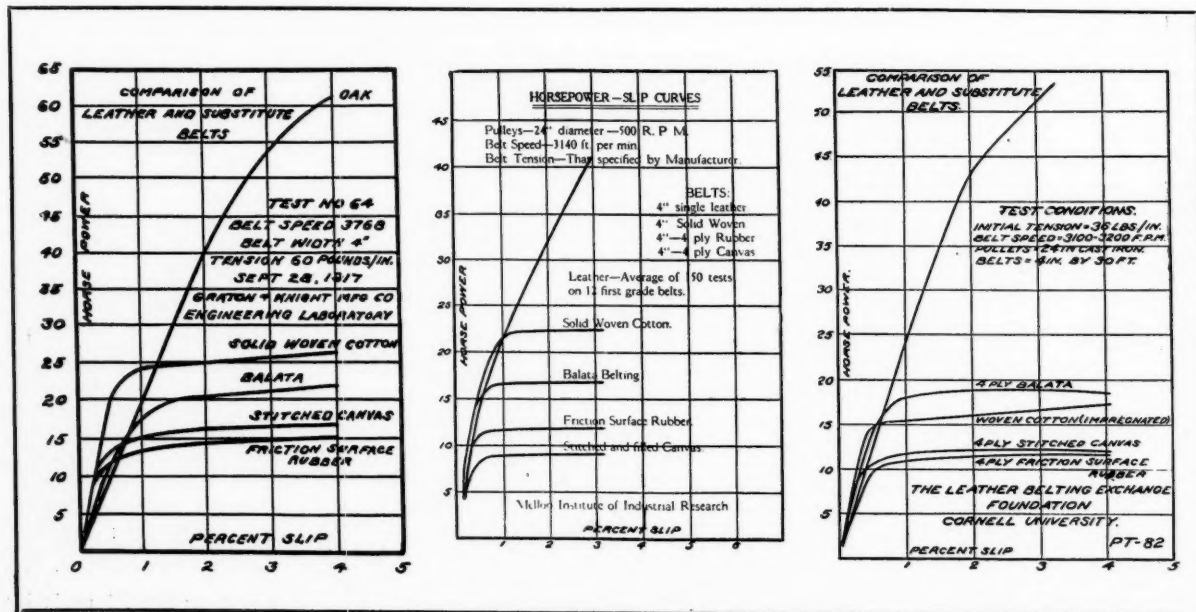 65
60
55
50
45
40
35
30
25
20
15
10
5
0
1
2
3
4
5
HORSE POWER
COMPARISON OF
LEATHER AND SUBSTITUTE
BELTS
OAK
TEST NO 64
BELT SPEED 3768
BELT WIDTH 4"
TENSION 60 POUNDS/IN.
SEPT 28, 1917
GRATON & KNIGHT MFG CO
ENGINEERING LABORATORY
SOLID WOVEN COTTON
BALATA
STITCHED CANVAS
FRICTION SURFACE
RUBBER
PERCENT SLIP
HORSEPOWER—SLIP CURVES
45
35
25
15
5
Pulleys—24" diameter—500 R. P M.
Belt Speed—3140 ft. per min.
Belt Tension—That specified by Manufacturer.
BELTS:
4" single leather
4" Solid Woven
4"—4 ply Rubber
4"—4 ply Canvas
Leather—Average of 150 tests
on 12 first grade belts.
HORSE POWER
Solid Woven Cotton.
Balata Belting
Friction Surface Rubber.
Stitched and filled Canvas.
Mellon Institute of Industrial Research
PERCENT SLIP
0
1
2
3
4
5
6
55
50
45
40
35
30
25
20
15
10
5
COMPARISON OF
LEATHER AND SUBSTITUTE
BELTS.
TEST CONDITIONS.
INITIAL TENSION=36 LBS/IN.
BELT SPEED=3100-3200 F.P.M.
PULLEYS=24 IN CAST IRON.
BELTS=4 IN. BY 30 FT.
HORSE POWER.
4 PLY BALATA
WOVEN COTTON (IMPREGNATED)
4 PLY STITCHED CANVAS
4 PLY FRICTION SURFACE
RUBBER
THE LEATHER BELTING EXCHANGE
FOUNDATION
CORNELL UNIVERSITY.
PERCENT SLIP
PT-82
1
2
3
4
5